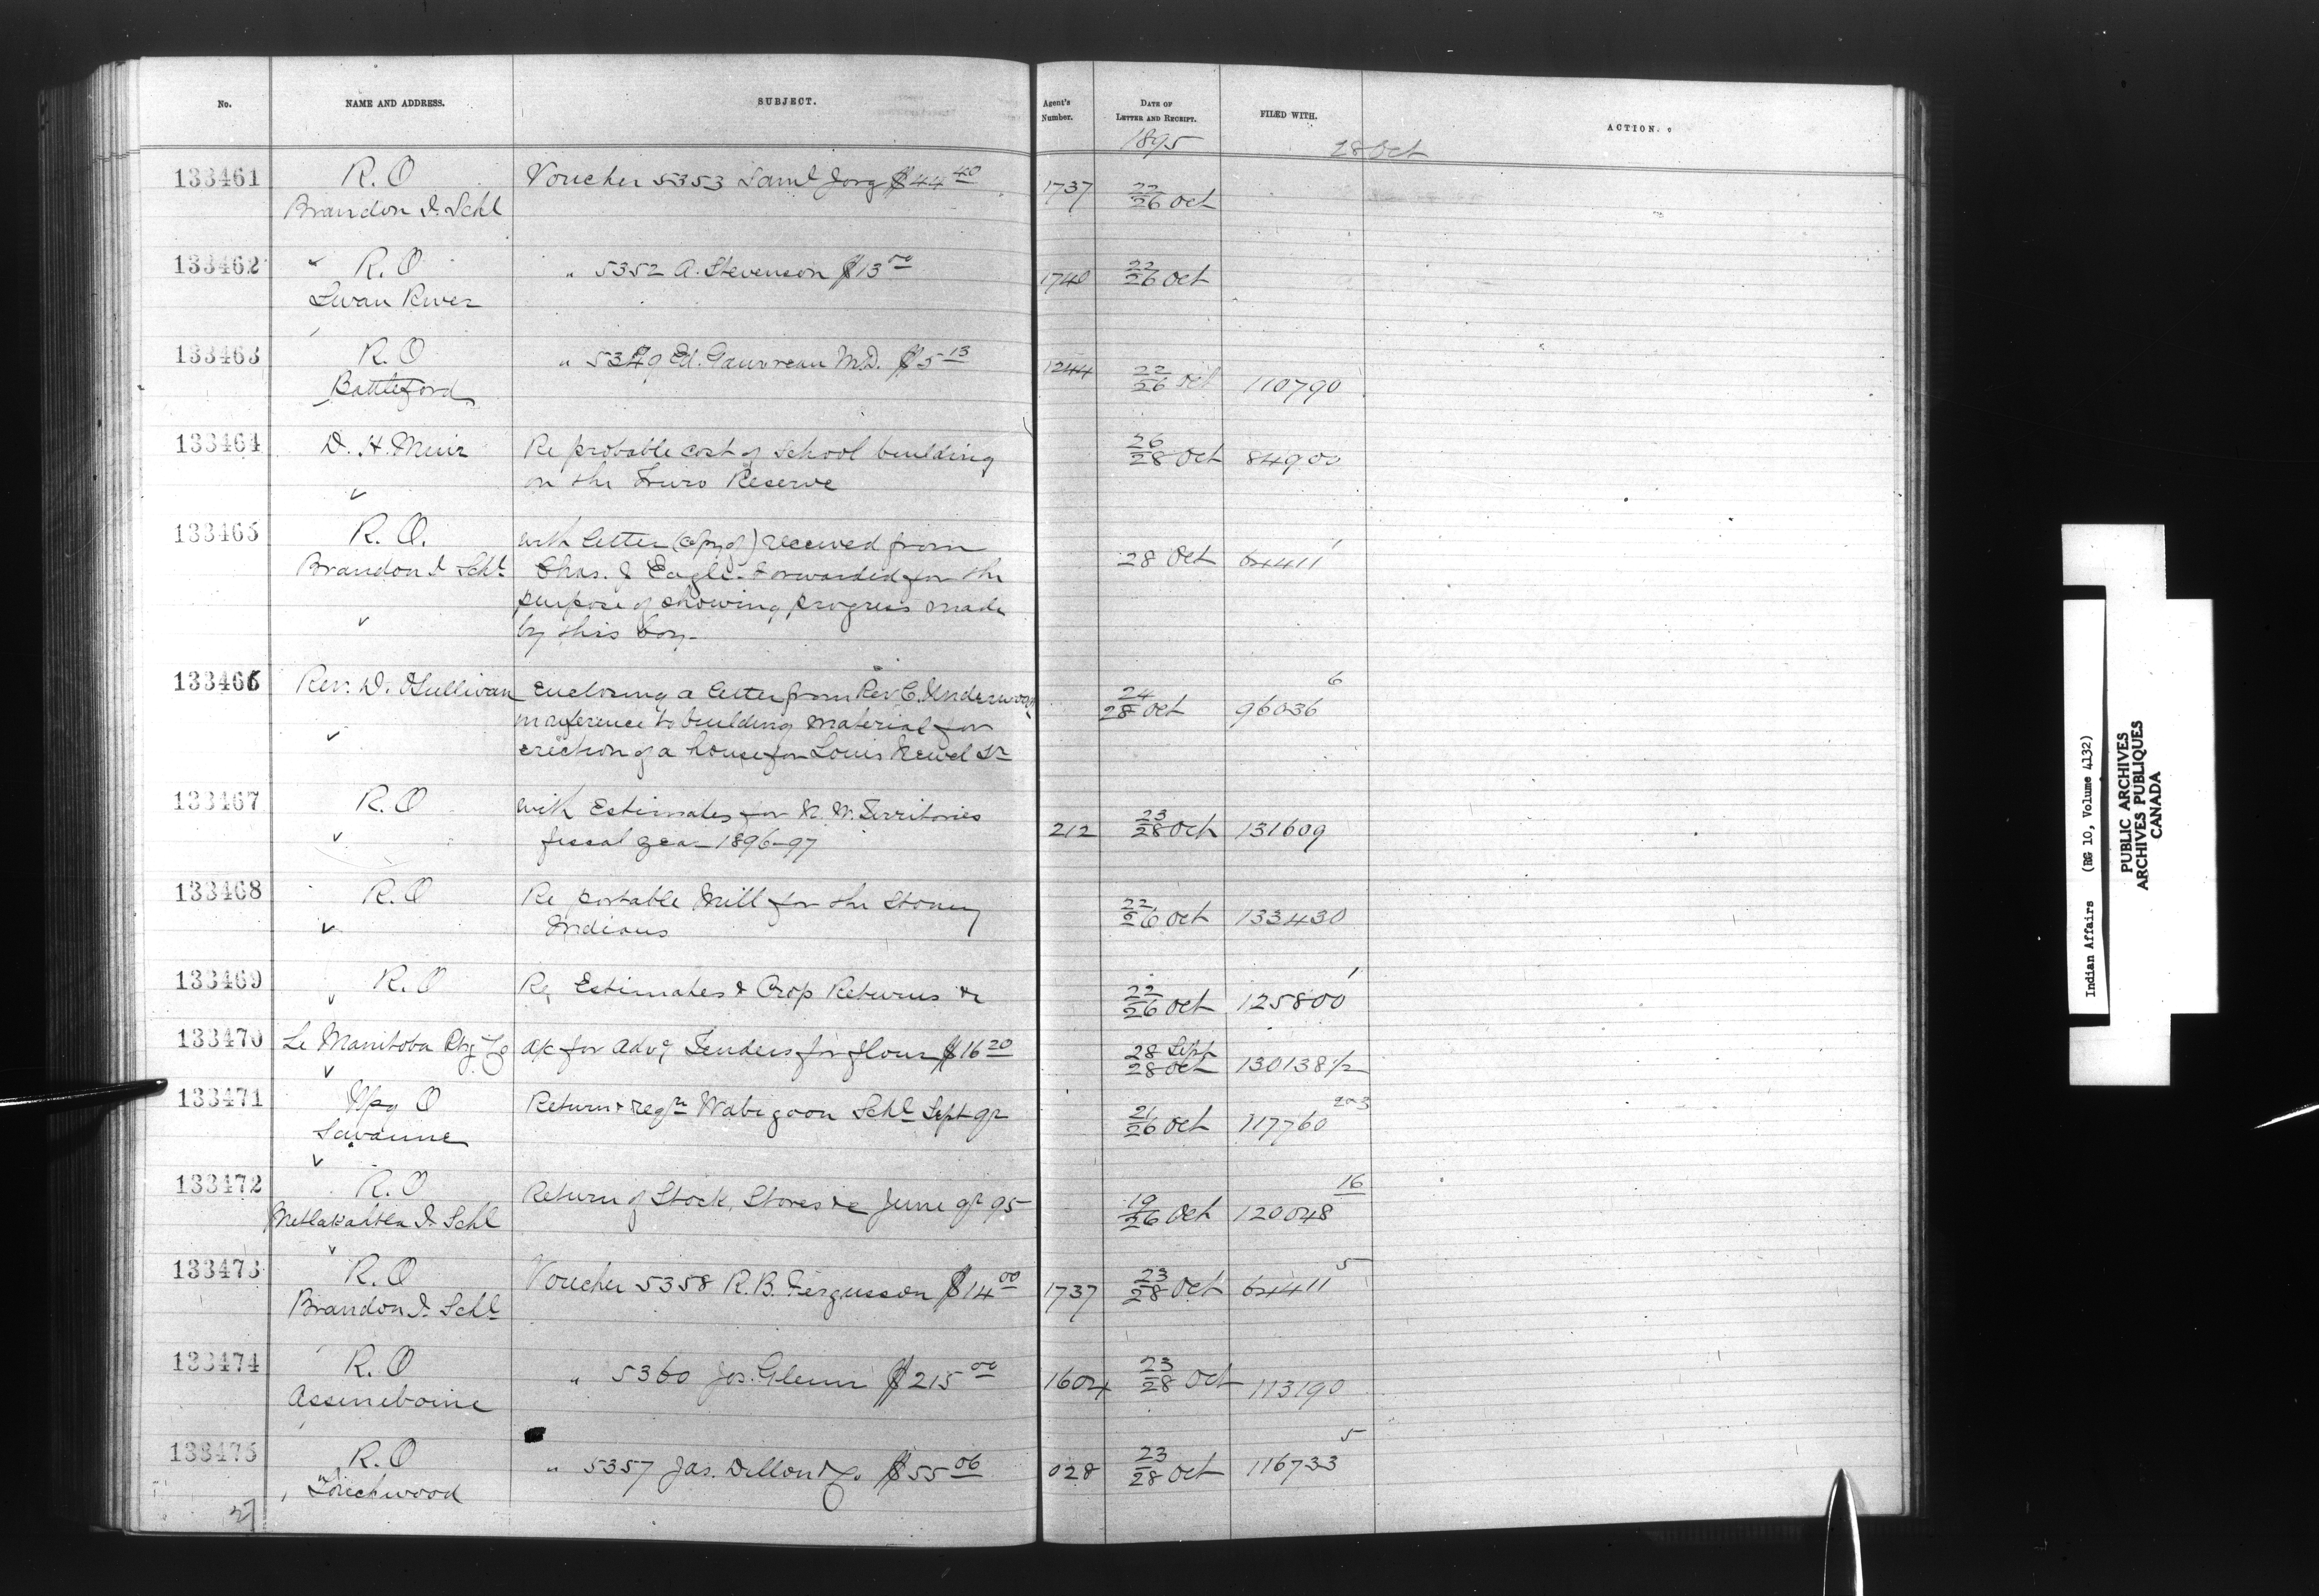 No. NAME AND ADDRESS. SUBJECT. Agent's Number. DATE OF LETTER AND RECEIPT. FILED WITH. ACTION.
1895 28 Oct
133461 R.O Voucher 5353 Saml Jorg $44 40 1737 22/26 Oct
Brandon I. Schl
133462 R.O " 5352 A. Stevenson $13 00 1740 22/26 Oct
Swan River
133463 R.O " 5349 Ed. Gauvreau M.D. $5 13 1244 22/26 Oct 110790
Battleford
133464 D. H. Muir Re probable cost of School building 26/28 Oct 84900
on the Truro Reserve
133465 R.O. with letter (copy of) received from 28 Oct 64411 1
Brandon I Schl Chas. & Eagle. Forwarded for the
purpose of showing progress made
by this boy.
133466 Rev. D. O'Sullivan Enclosing a letter from Rev C. Underwood 24/28 Oct 96036 6
in reference to building material for
erection of a house for Louis Newel Sr
133467 R.O with Estimates for N.W. Territories 212 23/28 Oct 131609
fiscal year 1896-97
133468 R.O Re portable Mill for the Stoney 22/26 Oct 133430
Indians
133469 R.O Re Estimates & Crop Returns &c 22/26 Oct 125800 1
133470 Le Manitoba Ptg Co a/c for advg Tenders for flour $16 20 28 Sept/28 Oct 130138 1/2
133471 Wpg O Return & regr Wabigoon Schl Sept qr 21/26 Oct 117760 2&3
Savanne
133472 R.O Return of Stock, Stores &c June qr 95 19/26 Oct 120048 16
Metlakahtla I. Schl
133473 R.O Voucher 5358 R.B. Fergusson $14 00 1737 23/28 Oct 64411 5
Brandon I. Schl
133474 R.O " 5360 Jos. Glenn $215 00 1604 23/28 Oct 113190
Assineboine
133475 R.O " 5357 Jas. Dillon & Co $55 06 028 23/28 Oct 116733 5
Touchwood
Indian Affairs (RG 10, Volume 4132)
PUBLIC ARCHIVES
ARCHIVES PUBLIQUES
CANADA